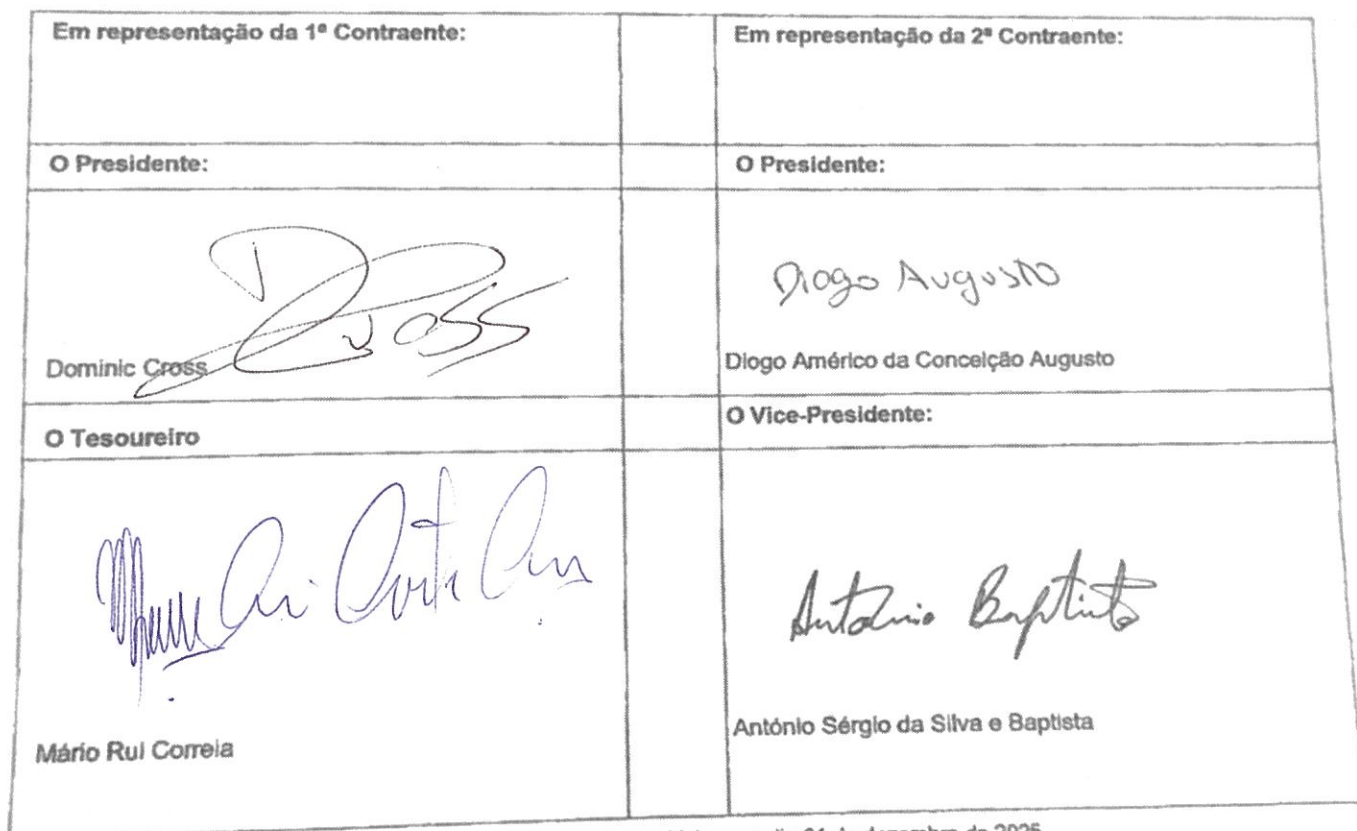 Em representação da 1ª Contraente:
Em representação da 2ª Contraente:
O Presidente:
O Presidente:
D Cross
Dominic Cross
Diogo Augusto
Diogo Américo da Conceição Augusto
O Tesoureiro
O Vice-Presidente:
Mário Rui Correia
António Baptista
António Sérgio da Silva e Baptista
de dezembro de 2025